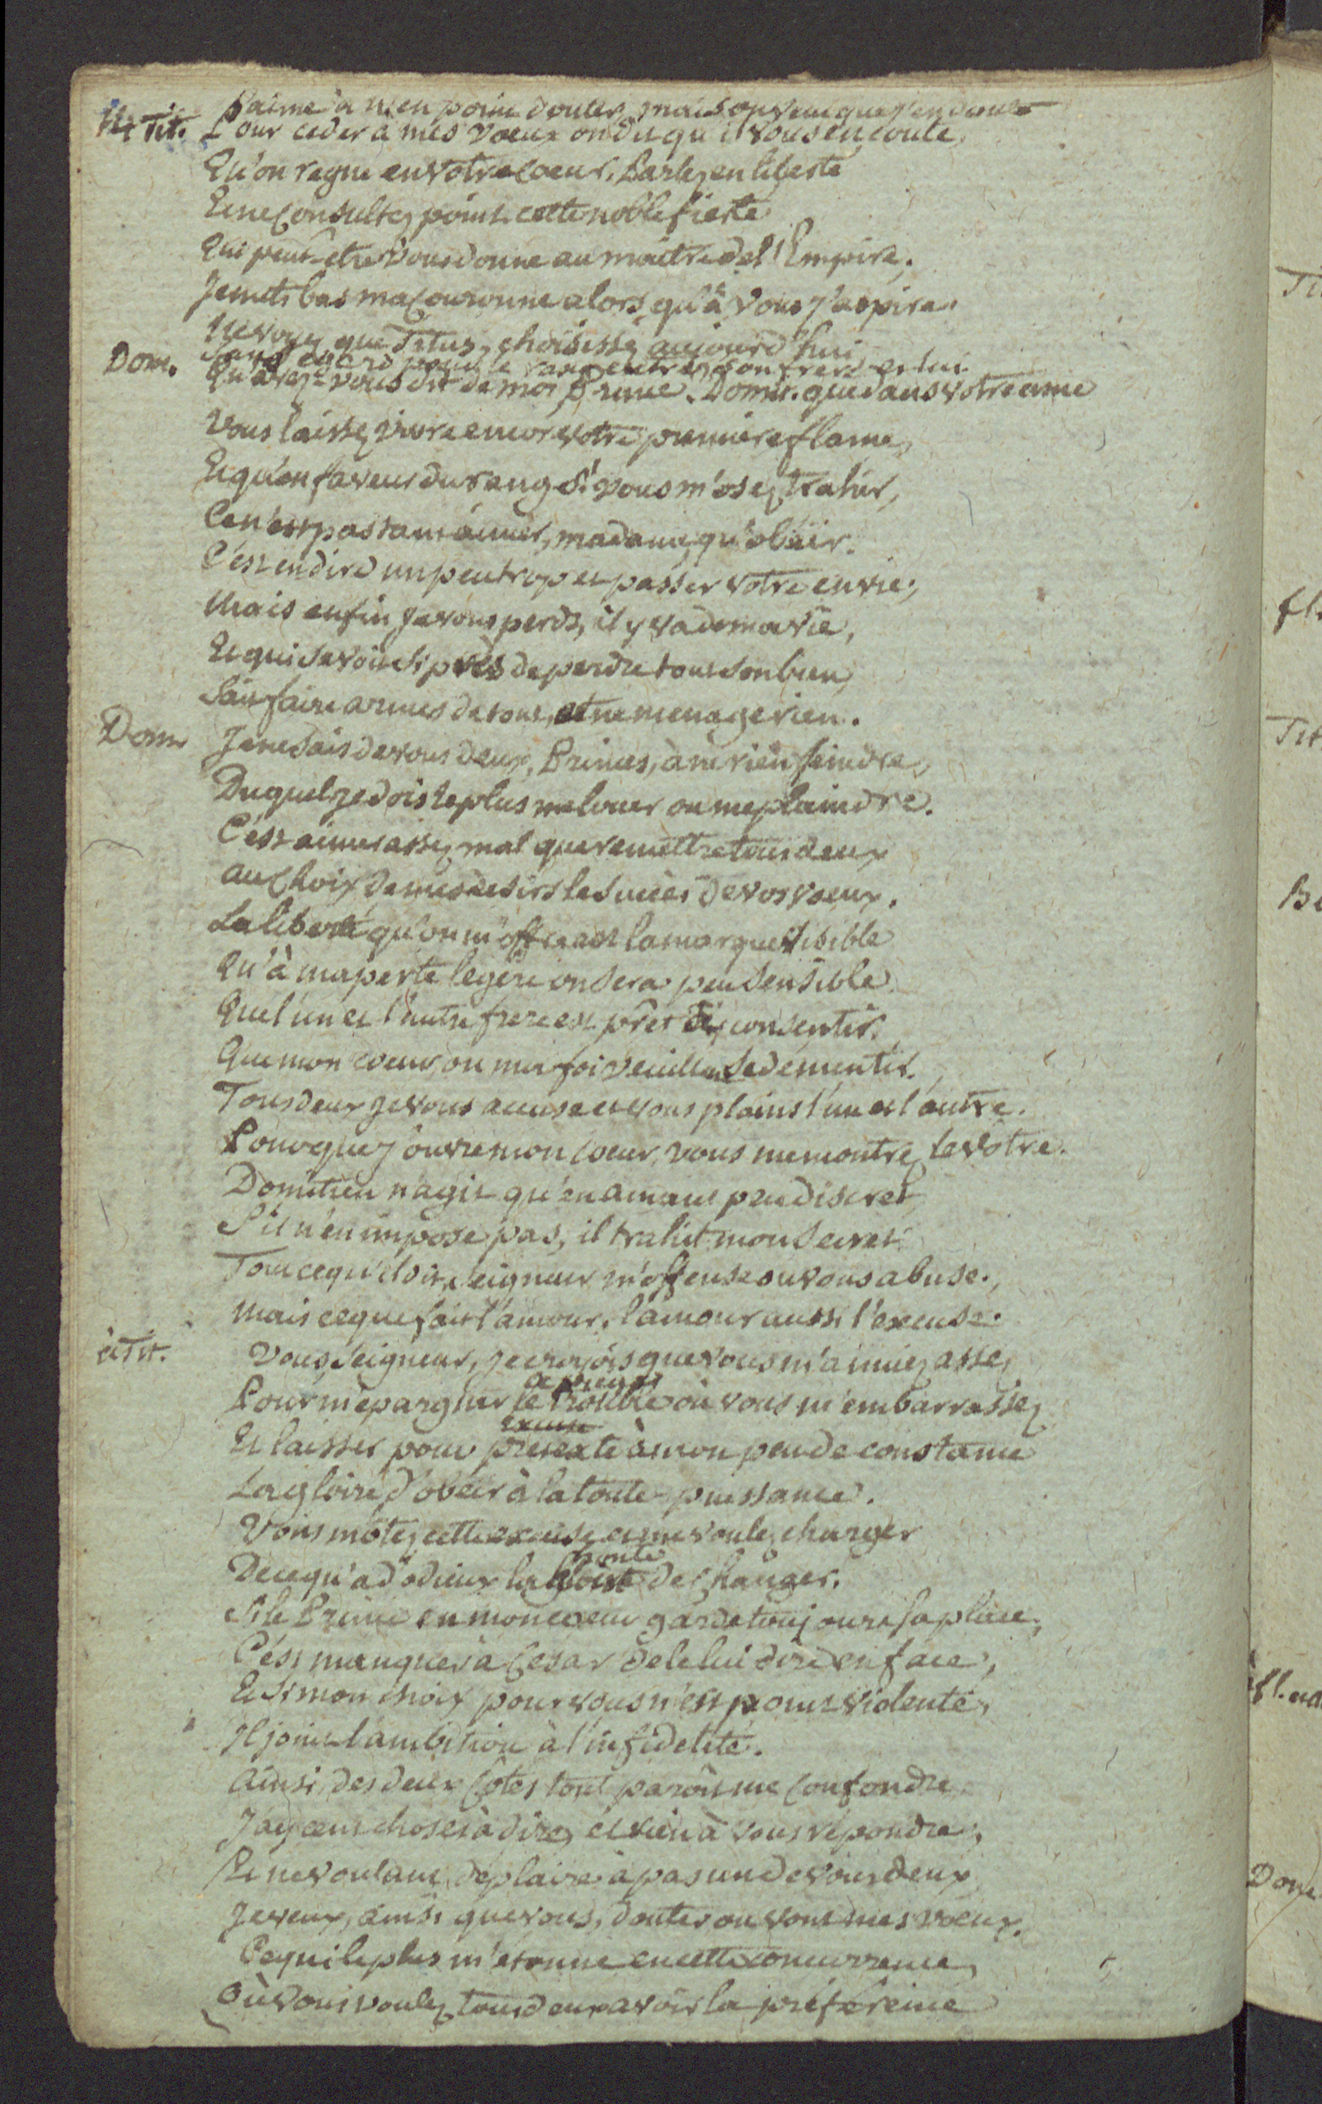 J'aime à n'en point douter, mais on veut que j'en doute
Tit. Pour ceder à mes voeux on dit qu'il vous en coute,
Qu'on regne en votre coeur. Parlez en liberté
Et ne consultez point cette noble fierté
Qui peut-etre vous donne au maitre de l'Empire.
Je mets bas ma couronne alors qu'à vous j'aspire.
Ne voyez que Titus, choisissez aujourd'hui
Sans égard pour le rang entre son frere et lui
Dom. Qu'avez-vous dit de moi, Prince. Domit. que dans votre ame
Vous laissez vivre encor votre premiere flame,
Et qu'en faveur du rang si vous m'osez trahir,
Ce n'est pas tant aimer, madame, qu'obéir.
C'est en dire un peu trop et passer votre envie;
Mais enfin je vous perds, il y va de ma vie,
Et qui se voit si près de perdre tout son bien
Sait faire armes de tout, et ne menage rien.
Dom Je ne sais de vous deux, Princes, à ne rien feindre,
Duquel je dois le plus me louer ou me plaindre.
C'est aimer assez mal que remettre tous deux
au Choix de mes desirs le succès de vos voeux.
La liberté qu'on m'offre est la marque visible
Qu'à ma perte legere on sera peu sensible
Que l'un et l'autre frere est prêt d'y consentir.
Que mon coeur ou ma foi veuille se démentir.
Tous deux je vous accuse et vous plains l'un et l'autre.
Pour que j'ouvre mon coeur, vous me montrez le votre.
Domitien n'agit qu'en amant peu discret
S'il n'en impose pas, il trahit mon secret
Tout ce qu'il dit, Seigneur, m'offense ou vous abuse.,
Mais ce que fait l'amour, l'amour aussi l'excuse.
à Tit. Vous, Seigneur, je croyois que vous m'aimiez assez
Pour m'epargner le trouble où vous m'embarrassez
excuse
Et laisser pour pretexte à mon peu de constance
La gloire d'obeir à la toute-puissance.
Vous m'otez cette excuse et me voulez charger
honte
De ce qu'a d'odieux la gloire de changer.
Si le Prince en mon coeur garde toujours sa place,
C'est manquer à Cesar de le lui dire en face,
Et si mon choix pour vous n'est point violenté,
Il joint l'ambition à l'infidelité.
Ainsi, des deux cotes tout paroit me confondre
J'ay cent choses à dire, et rien à vous répondre,
Et ne voulant déplaire à pas un de vous deux
Je veux, ainsi que vous, douter où vont mes voeux.
Ce qui le plus m'étonne en cette concurrence,
Où vous voulez tous deux avoir la préférence